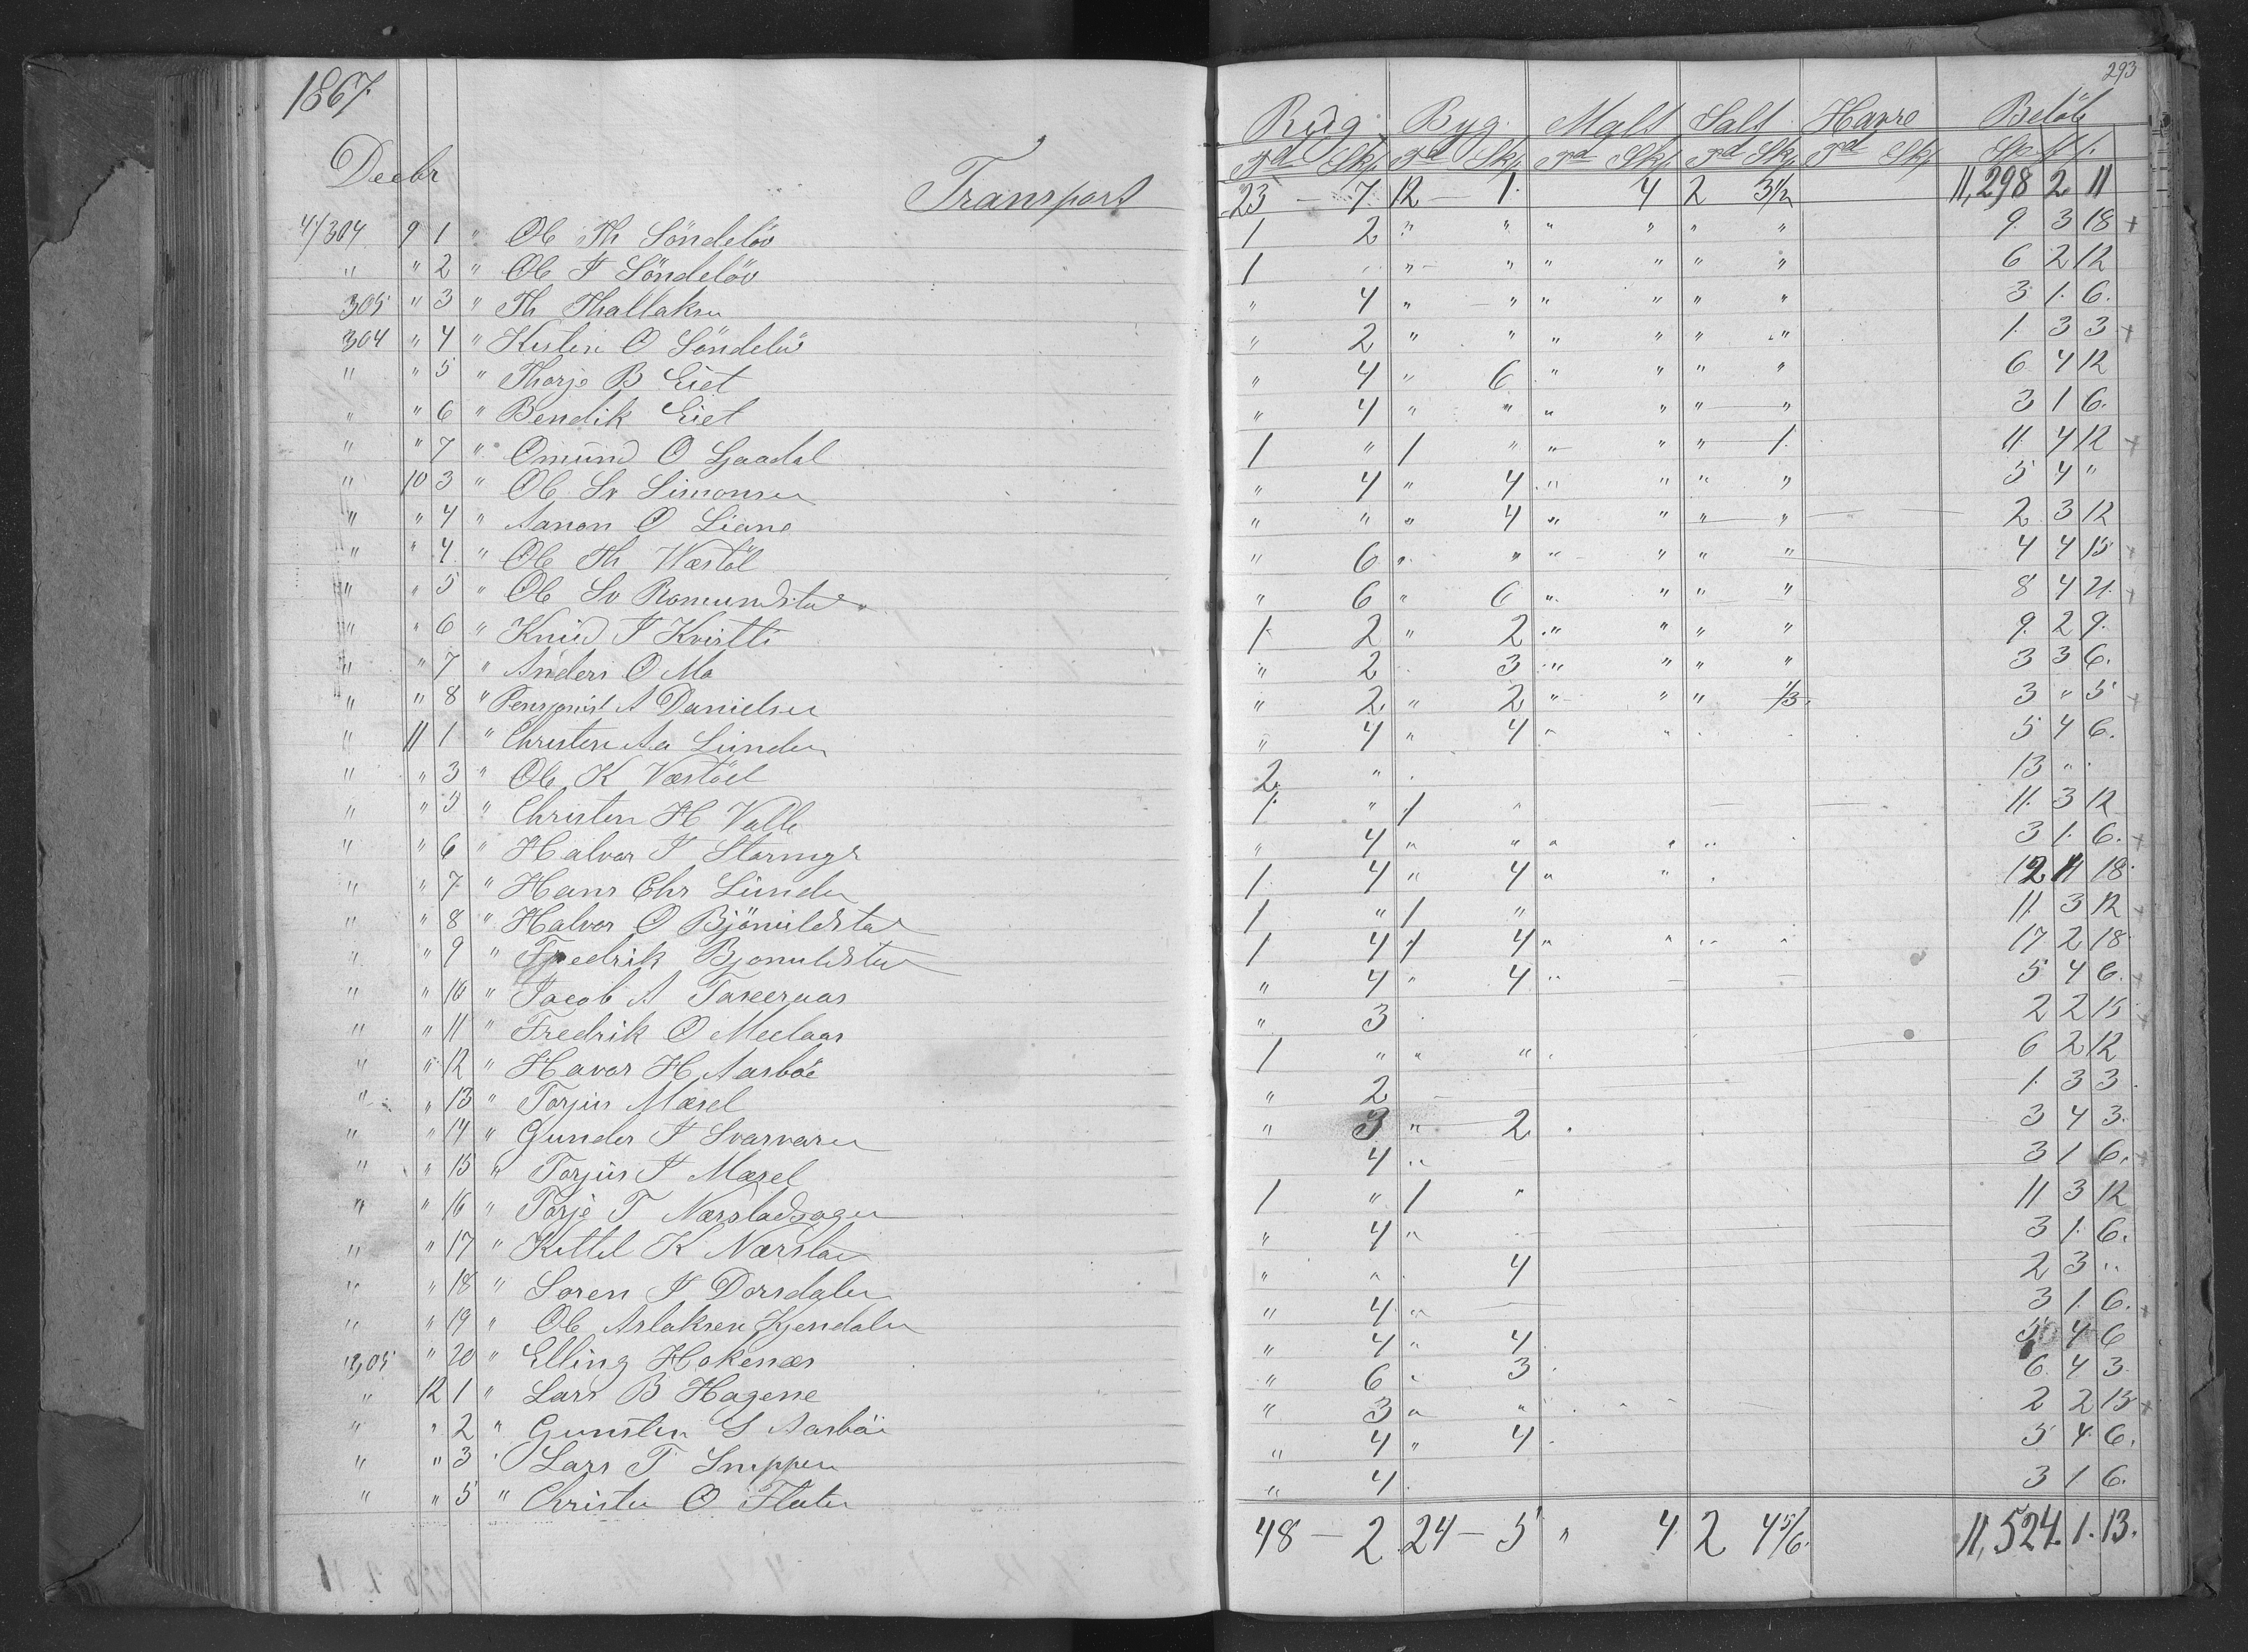 293
1867.
Rug Byg. Malt Salt Havre Beløb
Td Skp Td Skp Td Skp Td Skp Td Skp Sp
Decbr Transport 23 — 7 12 — 1. 4 2 3½ 11,298 2 11
4/304 9 1 " Ole Th Söndelöv 1 2 " " " " " " 9. 3 18 +
" " 2 " Ole T Söndelöv 1 " " " " " " 6 2 12
305 " 3 " Th Thallaksen " 4 " " " " " " 3 1. 6.
304 " 4 " Kisten O Söndelöv " 2 " " " " " " 1. 3 3 +
" " 5 " Thorje B Eiet " 4 " 6 " " " " 6 4 12
" " 6 " Bendik Eiet " 4 " " " " " " 3 1 6.
" " 7 " Omund O Ljaadal 1 " 1 " " " " 1. 11. 4 12 +
" 10 3 " Ole Sv Simonsen " 4 " 4 " " " " 5 4 "
" " 4 " Aanon O Liane " " " 4 " " " " 2 3 12
" " 4 " Ole Th Wæstöl " 6 " " " " " " 4 4 15 +
" " 5 " Ole Sv Romundstad " 6 " 6 " " " " 8 4 21. +
" " 6 " Knud T Kvistli 1 2 " 2 " " " " 9. 2 9.
" " 7 " Anders O Mo " 2 3 " " " " 3 3 6.
" " 8 " Pensjonist A Danielsen " 2 " 2 " " " 1/3. 3 " 5 +
" 11 1 " Christen Aa Lunden " 4 " 4 " 5 4 6.
" " 3 " Ole K Væstöel 2 " 13 "
" " 5 " Christen H Valle 1. " 1 " 11. 3 12
" " 6 " Halvor T Stormyr " 4 " " " " " 3 1. 6. +
" " 7 " Hans Chr Lunden 1. 4 " 4 " " 12 4 18.
" " 8 " Halvor O Bjönuldstad 1 " 1 " 11. 3 12 +
" " 9 " Fredrik Bjonuldstad 1 4 1 4 " " " " 17 2 18
" " 10 " Jacob A " 4 " 4 " 5 4 6. +
" " 11 " Fredrik O Meelaas " 3 2 2 15 +
" " 12 " Havor H Aasböe 1 " " " 6 2 12
" " 13 " Torjus Mæsel " 2 1. 3 3.
" " 14 " Gunder T Svarvaren " 3 " 2 3 4 3.
" " 15 " Torjus T Mæsel 4 " 3 1 6. +
" " 16 " Torje T 1 " 1 " 11 3 12
" " 17 " Kittel K Nærstad " 4 " 3 1. 6.
" " 18 " Soren T Dorsdalen " " 4 2 3 "
" " 19 " Ole Aslaksen Kjendalen " 4 " 3 1. 6. +
305 " 20 " Elling Hokenæs " 4 " 4 5 4 6
" 12 1 " Lars B Hagene " 6 " 3 6. 4 3
" " 2 " Gunsten S Aasböe " 3 " " 2 2 15 +
" " 3 " Lars T Snippen " 4 " 4 5 4 6.
" " 5 " Christen O Flaten " 4 3 1 6.
48 — 2 24 — 5 " 4 2 4 5/6. 11,524. 1. 13.